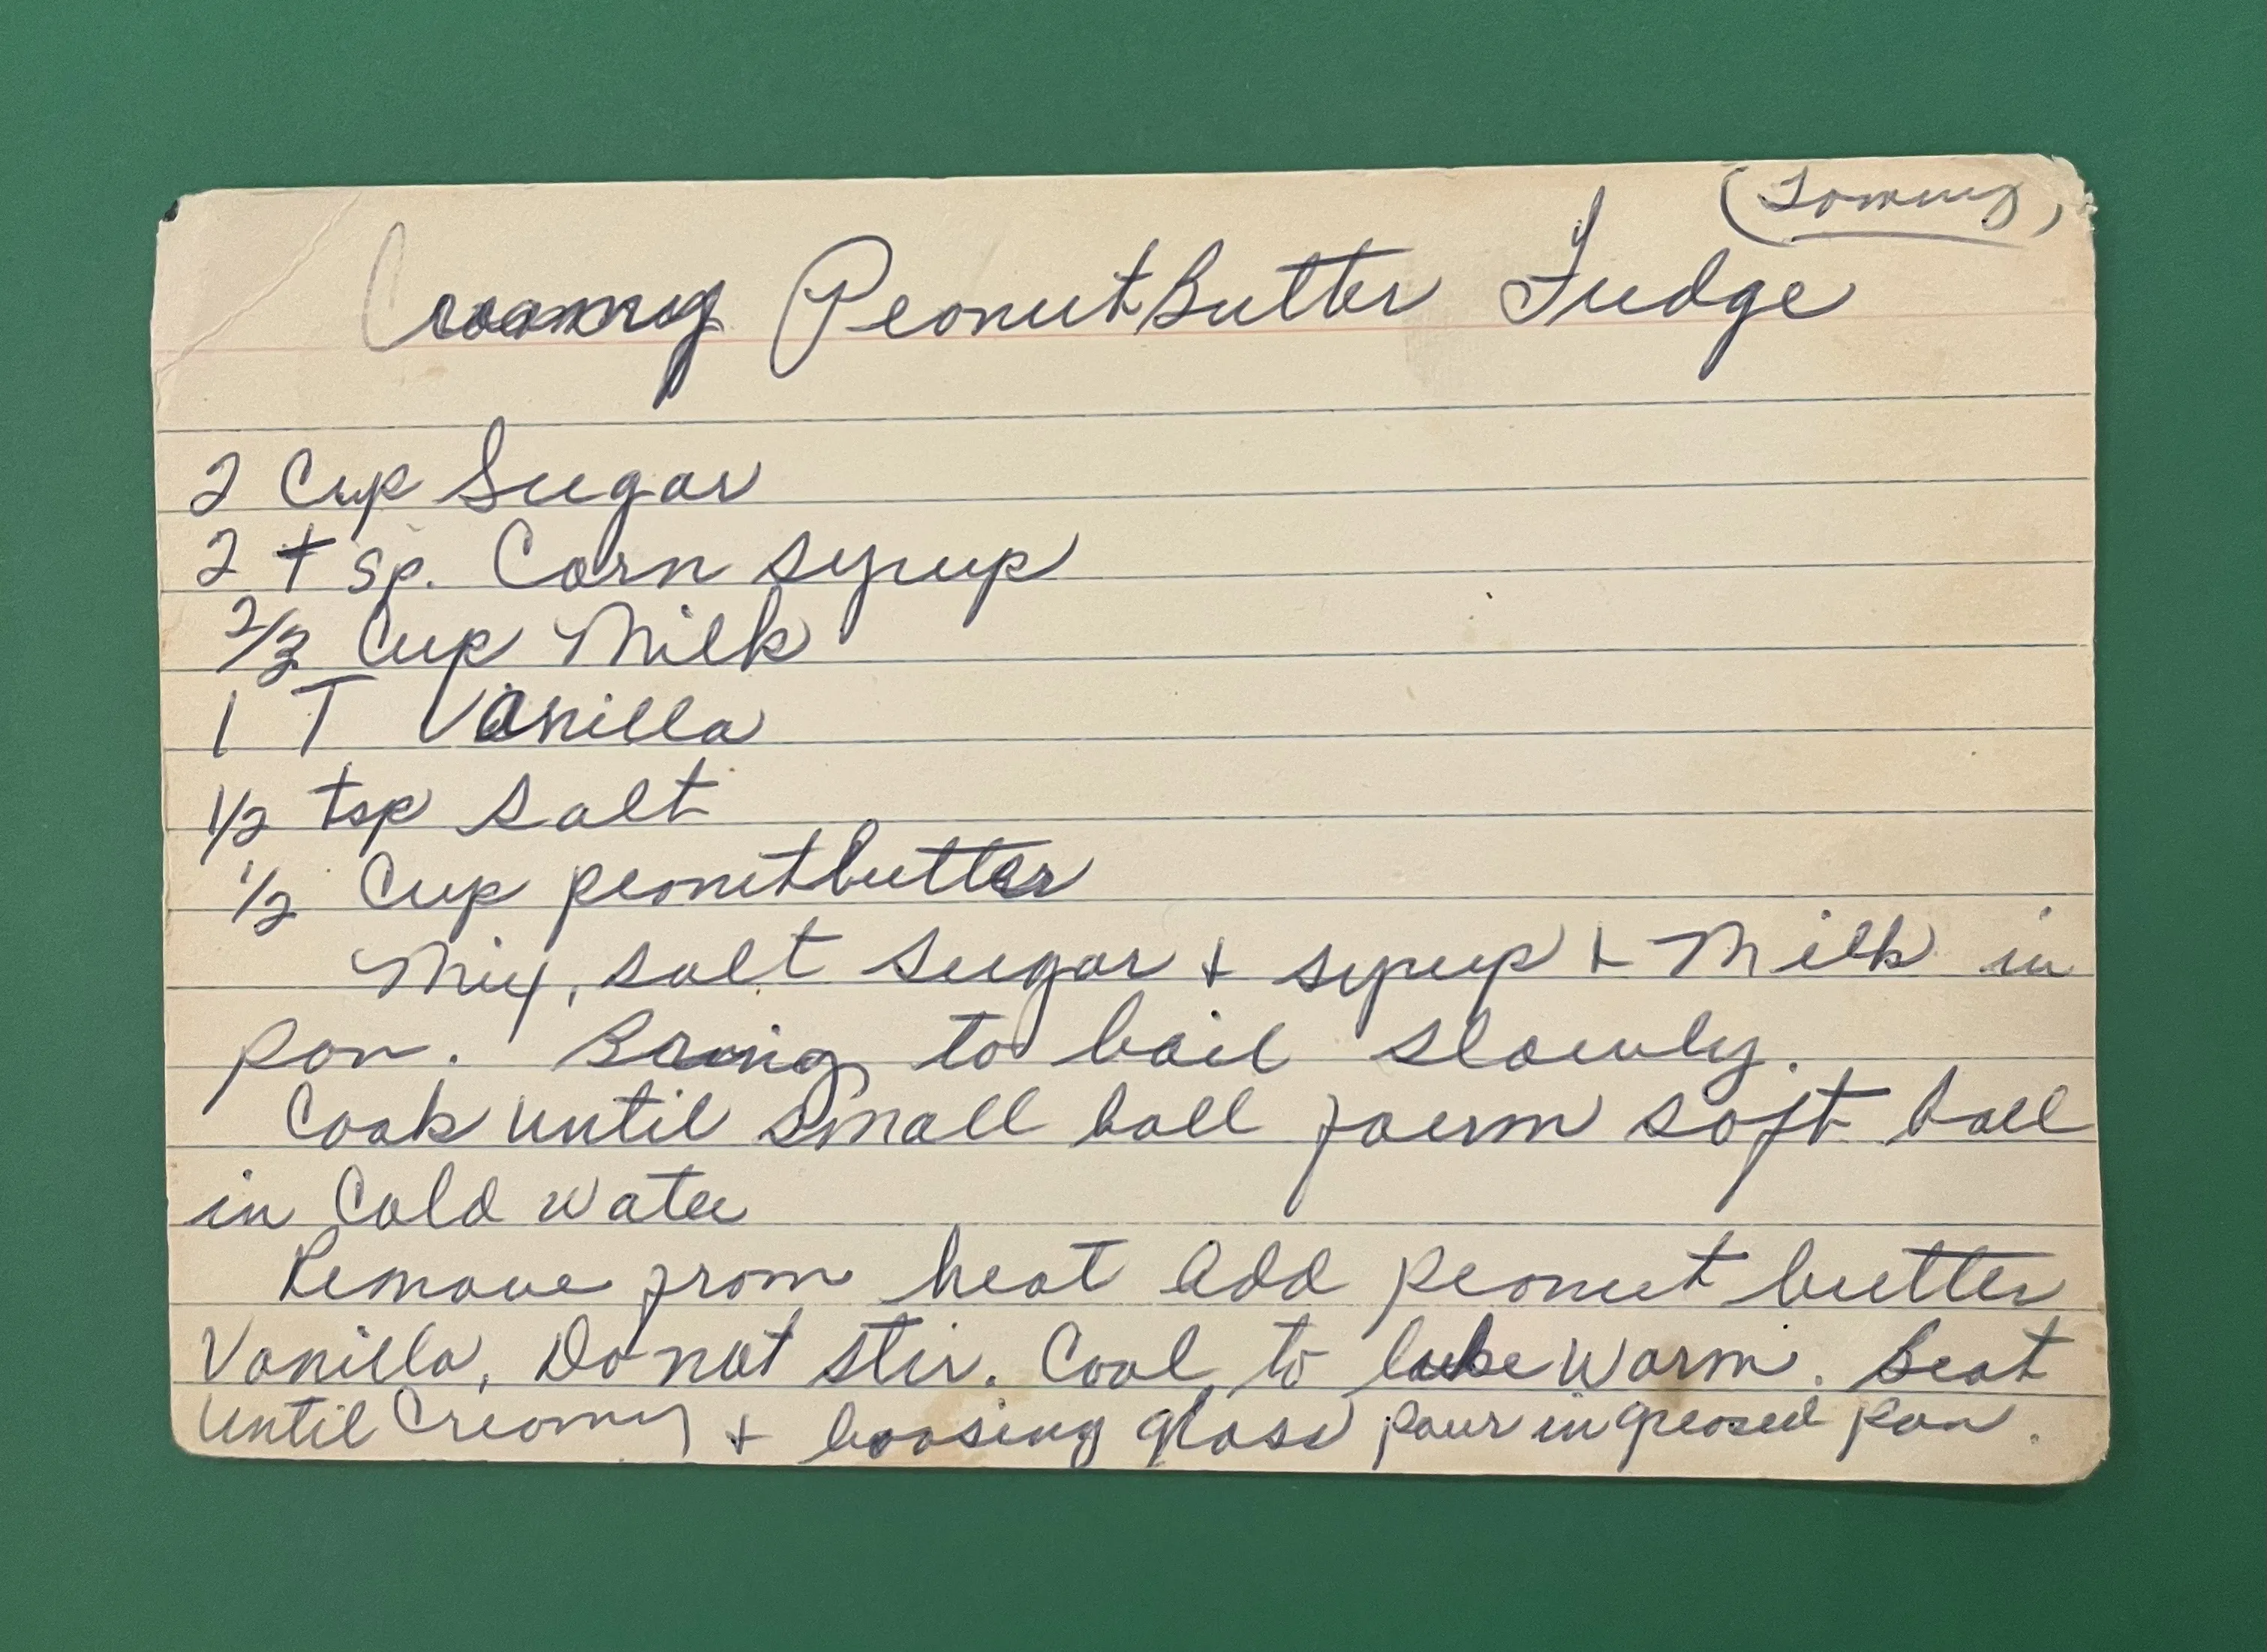 (Tommy)
Creamy Peanut Butter Fudge
2 Cup Sugar
2 tsp. Corn syrup
2/3 Cup Milk
1 T Vanilla
1/2 tsp salt
1/2 Cup peanutbutter
Mix, salt sugar + syrup + Milk in
pan. Bring to boil slowly.
Cook until small ball form soft ball
in Cold water
Remove from heat add peanut butter
Vanilla. Do not stir. Cool to luke warm. Beat
until Creamy + loosing gloss pour in greased pan.